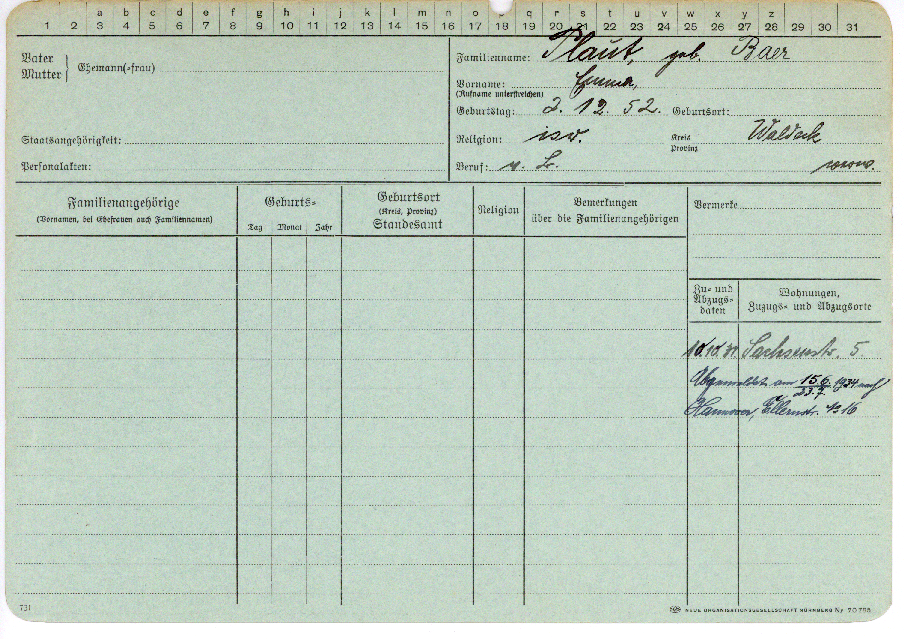 a b c d e f g h i k l m n o p q r s t u v w x y z
1 2 3 4 5 6 7 8 9 10 11 12 13 14 15 16 17 18 19 20 21 22 23 24 25 26 27 28 29 30 31
Vater
Mutter
Ehemann(-frau)
Staatsangehörigkeit:
Personalakten:
Familienname: Plaut, geb. Baer
Vorname: Emma,
(Rufname unterstreichen)
Geburtstag: 2. 12. 52. Geburtsort:
Religion: isr. Kreis Waldeck
Provinz
Beruf: o. B.
Familienangehörige
(Vornamen, bei Ehefrauen auch Familiennamen)
Geburts-
Tag Monat Jahr
Geburtsort
(Kreis, Provinz)
Standesamt
Religion
Bemerkungen
über die Familienangehörigen
Vermerke
Zu- und
Abzugs-
daten
Wohnungen,
Zuzugs- und Abzugsorte
10.10.31 Sachsenstr. 5.
Abgemeldet am 15.6. 1934 nach
23.7.
Hannover, Ellernstr. 16
731
NEUE ORGANISATIONSGESELLSCHAFT NÜRNBERG Ny 70 788